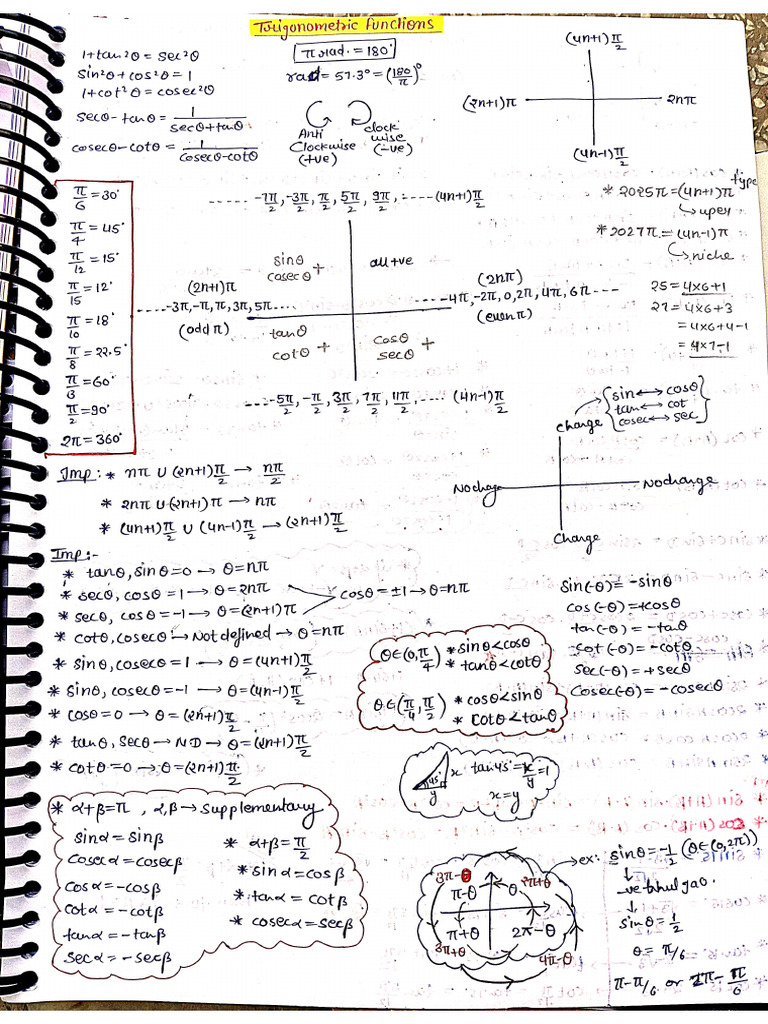 Trigonometric Functions
1+tan²θ = sec²θ
sin²θ+cos²θ = 1
1+cot²θ = cosec²θ
secθ-tanθ = 1/(secθ+tanθ)
cosecθ-cotθ = 1/(cosecθ-cotθ)
π rad. = 180°
rad = 57.3° = (180/π)°
Anti Clockwise (+ve)
clock wise (-ve)
(4n+1)π/2
(2n+1)π
2nπ
(4n-1)π/2
π/6 = 30°
π/4 = 45°
π/12 = 15°
π/15 = 12°
π/10 = 18°
π/8 = 22.5°
π/3 = 60°
π/2 = 90°
2π = 360°
-----‐ -7π/2, -3π/2, π/2, 5π/2, 9π/2, ----- (4n+1)π/2
sinθ cosecθ +
all +ve
(2n+1)π
----- -3π, -π, π, 3π, 5π ....
(odd π)
(2nπ)
----- -4π, -2π, 0, 2π, 4π, 6π ---
(even π)
tanθ cotθ +
cosθ secθ +
---- -5π/2, -π/2, 3π/2, 7π/2, 11π/2, .... (4n-1)π/2
* 2025π = (4n+1)π type
→ uper
* 2027π = (4n-1)π
→ niche
25 = 4×6+1
27 = 4×6+3
= 4×6+4-1
= 4×7-1
sin ↔ cosθ
tan ↔ cot
cosec ↔ sec
change
No chang
No change
Change
Imp: * nπ ∪ (2n+1)π/2 → nπ/2
* 2nπ ∪ (2n+1)π → nπ
* (4n+1)π/2 ∪ (4n-1)π/2 → (2n+1)π/2
Imp:-
* tanθ, sinθ = 0 → θ = nπ
* secθ, cosθ = 1 → θ = 2nπ
* secθ, cosθ = -1 → θ = (2n+1)π
cosθ = ±1 → θ = nπ
* cotθ, cosecθ → Not defined → θ = nπ
* sinθ, cosecθ = 1 → θ = (4n+1)π/2
* sinθ, cosecθ = -1 → θ = (4n-1)π/2
* cosθ = 0 → θ = (2n+1)π/2
* tanθ, secθ → ND → θ = (2n+1)π/2
* cotθ = 0 → θ = (2n+1)π/2
θ∈(0,π/4) * sinθ < cosθ
* tanθ < cotθ
θ∈(π/4,π/2) * cosθ < sinθ
* cotθ < tanθ
sin(-θ) = -sinθ
cos(-θ) = +cosθ
tan(-θ) = -tanθ
cot(-θ) = -cotθ
sec(-θ) = +secθ
Cosec(-θ) = -cosecθ
45°
x
y
tan45° = x/y = 1
x = y
* α+β = π, α,β → Supplementary
sinα = sinβ
cosecα = cosecβ
cosα = -cosβ
cotα = -cotβ
tanα = -tanβ
secα = -secβ
* α+β = π/2
* sinα = cosβ
* tanα = cotβ
* cosecα = secβ
3π-θ
π-θ
θ
2π+θ
π+θ
2π-θ
3π+θ
4π-θ
ex: sinθ = -1/2 (θ∈(0,2π))
-ve bhul jao.
sinθ = 1/2
θ = π/6
π-π/6 or 2π-π/6